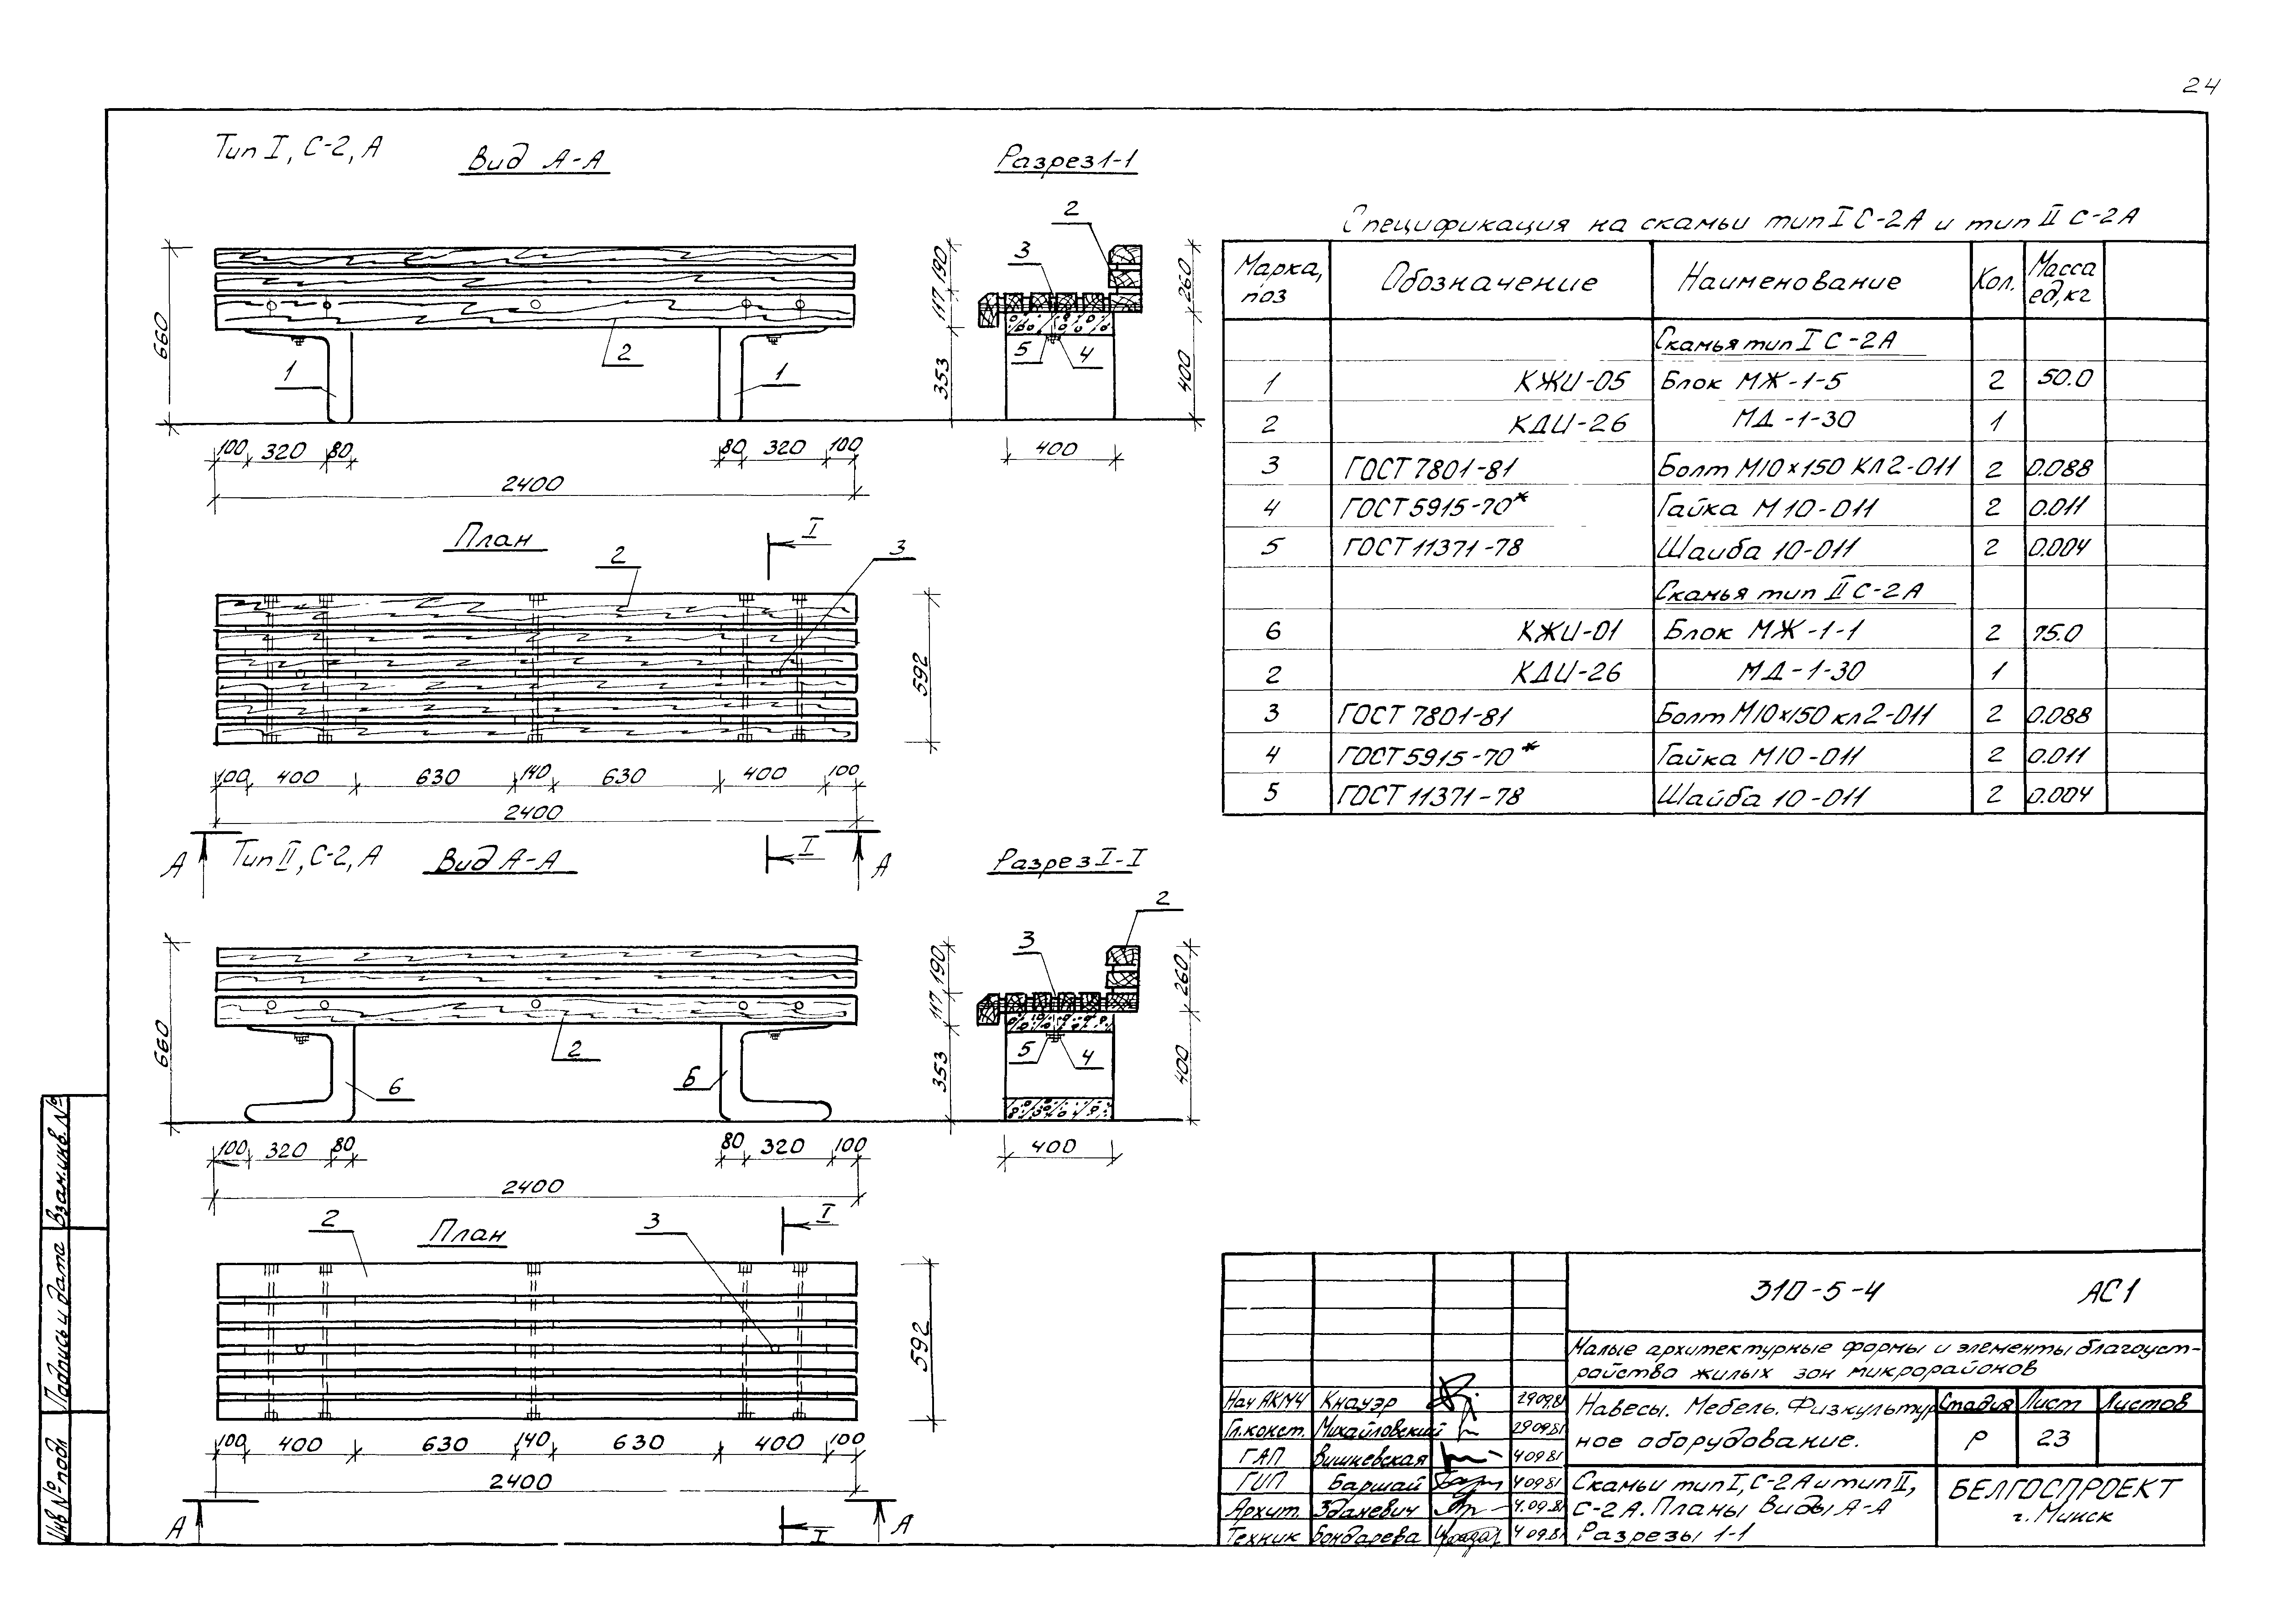 24
Тип I, С-2, А
Вид А-А
Разрез 1-1
2
3
117 190
260
660
353
400
5
4
2
1
1
100 320 80
80 320 100
400
2400
План
I
2
3
592
100 400 630 140 630 400 100
2400
А
I
А
Тип II, С-2, А
Вид А-А
Разрез I-I
2
3
117 190
260
660
353
400
5
4
2
6
Б
100 320 80
80 320 100
400
2400
План
I
2
3
592
100 400 630 140 630 400 100
2400
А
I
А
Спецификация на скамьи тип I С-2А и тип II С-2А
Марка, поз Обозначение Наименование Кол. Масса ед, кг
Скамья тип I С-2А
1 КЖИ-05 Блок МЖ-1-5 2 50.0
2 КДИ-26 МД-1-30 1
3 ГОСТ 7801-81 Болт М10×150 КЛ2-011 2 0.088
4 ГОСТ 5915-70* Гайка М10-011 2 0.011
5 ГОСТ 11371-78 Шайба 10-011 2 0.004
Скамья тип II С-2А
6 КЖИ-01 Блок МЖ-1-1 2 75.0
2 КДИ-26 МД-1-30 1
3 ГОСТ 7801-81 Болт М10×150 кл2-011 2 0.088
4 ГОСТ 5915-70* Гайка М10-011 2 0.011
5 ГОСТ 11371-78 Шайба 10-011 2 0.004
310-5-4 АС1
Малые архитектурные формы и элементы благоуст-
ройства жилых зон микрорайонов
Нач АКМЧ Кнауэр 29.09.81
Гл. конст. Михайловский 29.09.81
ГАП Вишневская 4.09.81
ГИП Баршай 4.09.81
Архит. Зданевич 4.09.81
Техник Бондарева 4.09.81
Навесы. Мебель. Физкультур
ное оборудование.
Стадия Лист Листов
Р 23
Скамьи тип I, С-2А и тип II,
С-2А. Планы Виды А-А
Разрезы 1-1
БЕЛГОСПРОЕКТ
г. Минск
Взам.инв.№
Подпись и дата
Инв № подл